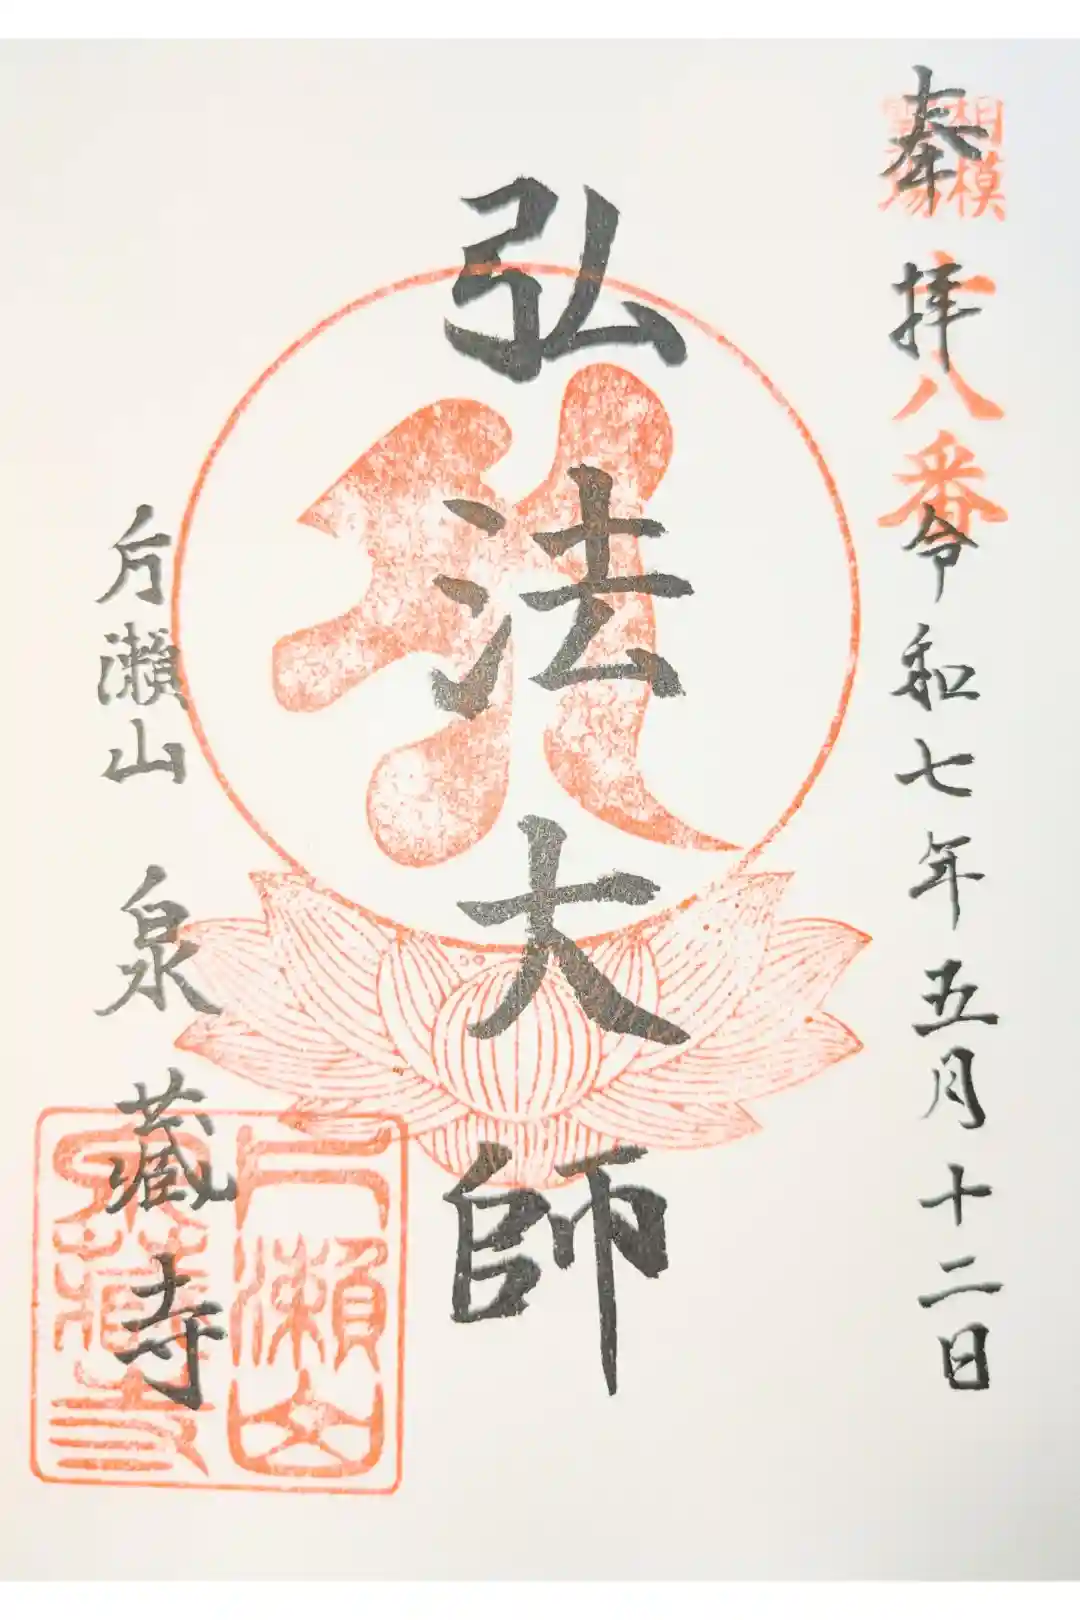 相模
霊場
十八番
奉拝 令和七年五月十二日
弘法大師
片瀬山 泉蔵寺
片瀬山
泉蔵寺